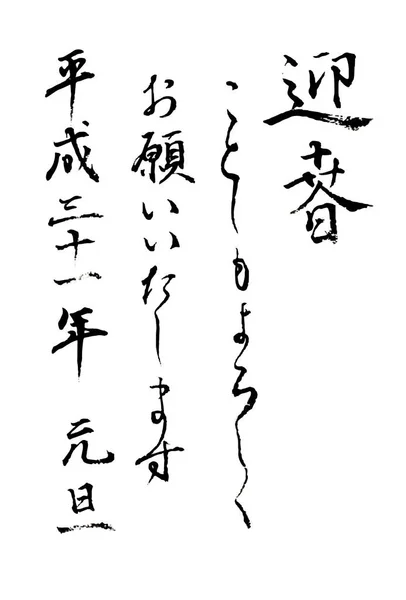 迎春
ことしもよろしく
お願いいたします
平成三十一年 元旦